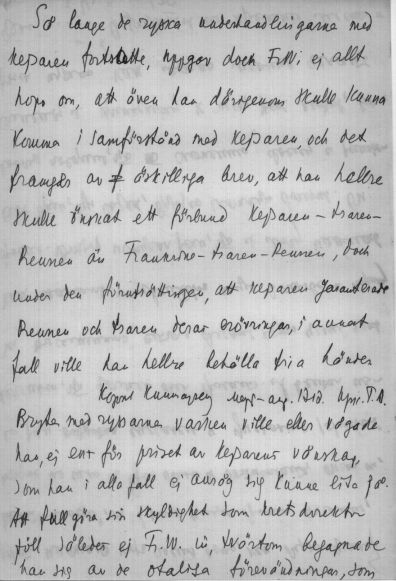 Så länge de ryska underhandlingarna med
kejsaren fortsatte, uppgav doch F.W. ej allt
hopp om, att även han därigenom skulle kunna
komma i samförstånd med kejsaren, och det
framgår av åtskilliga brev, att han hellre
skulle önskat ett förbund kejsaren-tsaren-
Preussen än Frankrike-tsaren-Preussen, doch
under den förutsättningen, att kejsaren garanterade
Preussen och tsaren deras erövringar, i annat
fall ville han hellre behålla fria händer
Brytn med ryssarna varken ville eller vågade
han, ej ens för priset av kejsarens vänskap,
som han i alla fall ej ansåg sig kunna lita på.
Att fullgöra sin skyldighet som kretsdirektor
föll således ej F.W. in, tvärtom begagnade
han sig av de otaliga förevändningar, som